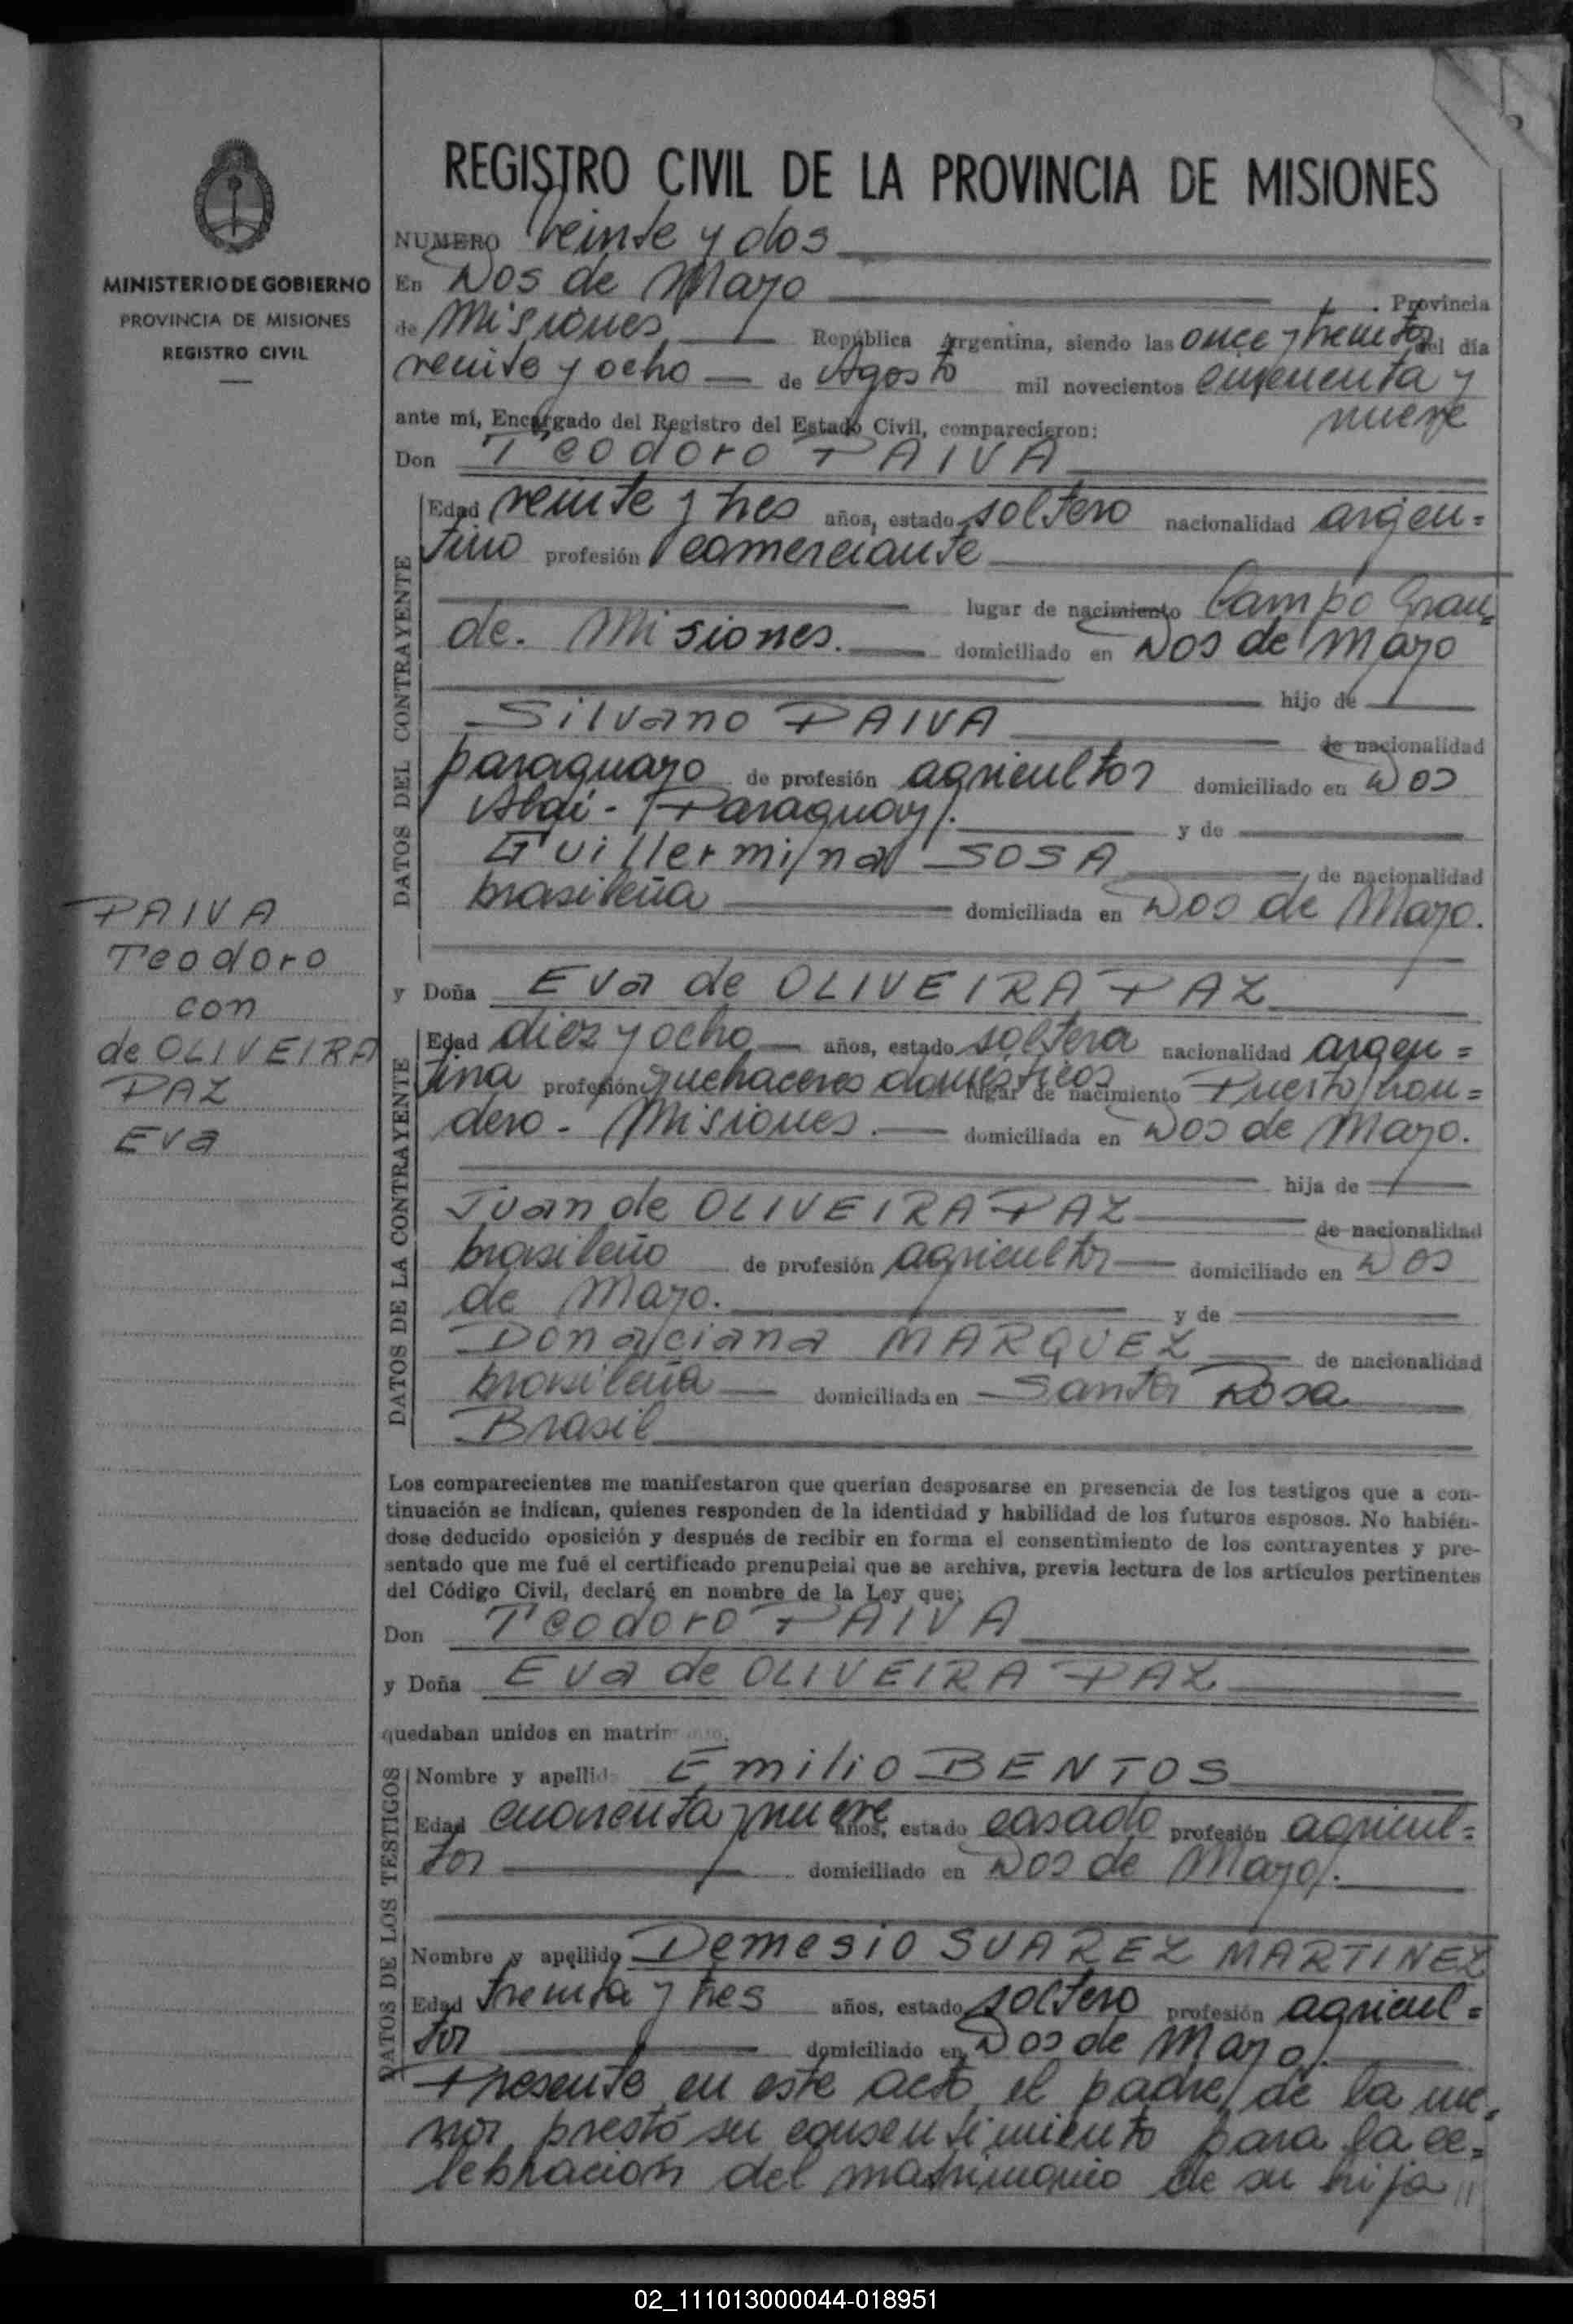 REGISTRO CIVIL DE LA PROVINCIA DE MISIONES
MINISTERIO DE GOBIERNO
PROVINCIA DE MISIONES
REGISTRO CIVIL
NUMERO Veinte y dos
En Dos de Mayo Provincia
de Misiones, República Argentina, siendo las once y treinta del día
veinte y ocho de Agosto mil novecientos cincuenta y
nueve
ante mí, Encargado del Registro del Estado Civil, comparecieron:
Don Teodoro PAIVA
DATOS DEL CONTRAYENTE
Edad veinte y tres años, estado soltero nacionalidad argen=
tino profesión comerciante
lugar de nacimiento Campo Gran=
de. Misiones. domiciliado en Dos de Mayo
hijo de
Silvano PAIVA
de nacionalidad
paraguayo de profesión agricultor domiciliado en Dos
Abai - Paraguay. y de
Guillermina SOSA
de nacionalidad
brasileña domiciliada en Dos de Mayo.
PAIVA
Teodoro
con
de OLIVEIRA
PAZ
Eva
y Doña Eva de OLIVEIRA PAZ
DATOS DE LA CONTRAYENTE
Edad diez y ocho años, estado soltera nacionalidad argen=
tina profesión quehaceres domésticos lugar de nacimiento Puerto
dero - Misiones. domiciliada en Dos de Mayo.
hija de
Juan de OLIVEIRA PAZ
de nacionalidad
brasileño de profesión agricultor domiciliado en Dos
de Mayo. y de
Donaciana MARQUEZ de nacionalidad
brasileña domiciliada en Santa Rosa
Brasil
Los comparecientes me manifestaron que querían desposarse en presencia de los testigos que a con-
tinuación se indican, quienes responden de la identidad y habilidad de los futuros esposos. No habién-
dose deducido oposición y después de recibir en forma el consentimiento de los contrayentes y pre-
sentado que me fué el certificado prenupcial que se archiva, previa lectura de los artículos pertinentes
del Código Civil, declaré en nombre de la Ley que;
Don Teodoro PAIVA
y Doña Eva de OLIVEIRA PAZ
quedaban unidos en matrimonio.
DATOS DE LOS TESTIGOS
Nombre y apellido Emilio BENTOS
Edad cuarenta y nueve años, estado casado profesión agricul=
tor domiciliado en Dos de Mayo.
Nombre y apellido Demesio SUAREZ MARTINEZ
Edad treinta y tres años, estado soltero profesión agricul=
tor domiciliado en Dos de Mayo.
Presente en este acto el padre de la me=
nor prestó su consentimiento para la ce=
lebración del matrimonio de su hija //
02_111013000044-018951